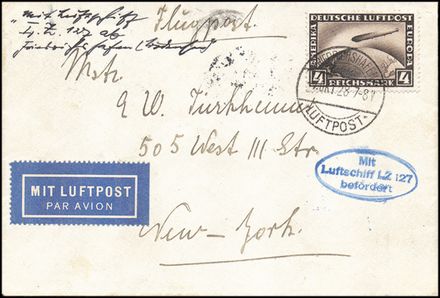 "Mit Luftschiff
L.Z. 127 ab
Friedrichshafen (Bodensee)
Flugpost.
DEUTSCHE LUFTPOST
AMERIKA
EUROPA
4 4
REICHSMARK
28.7-8
LUFTPOST
Mstr.
G W. Türkheim
505 West III Str.
MIT LUFTPOST
PAR AVION
Mit
Luftschiff LZ 127
befördert
New-York.